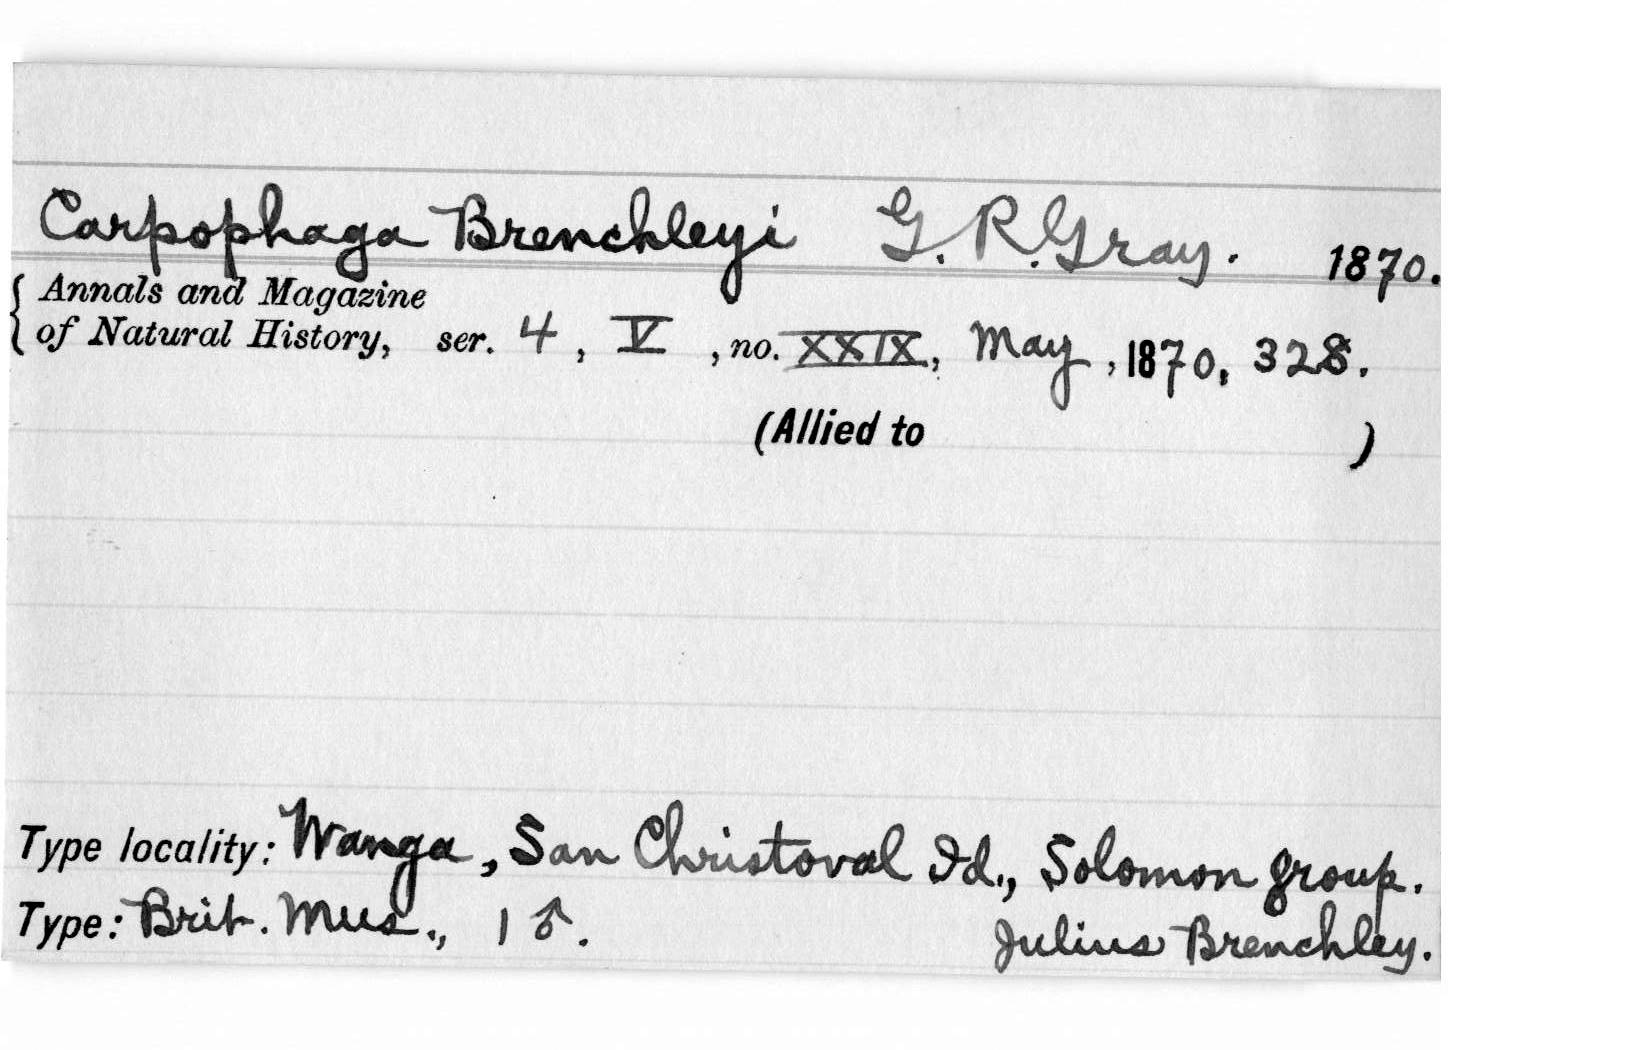 Carpophaga Brenchleyi G. R. Gray. 1870.
{ Annals and Magazine
of Natural History, ser. 4, V, no. XXIX, May, 1870, 328.
(Allied to )
Type locality: Wanga, San Christoval Id., Solomon group.
Type: Brit. Mus., 1 ♂. Julius Brenchley.